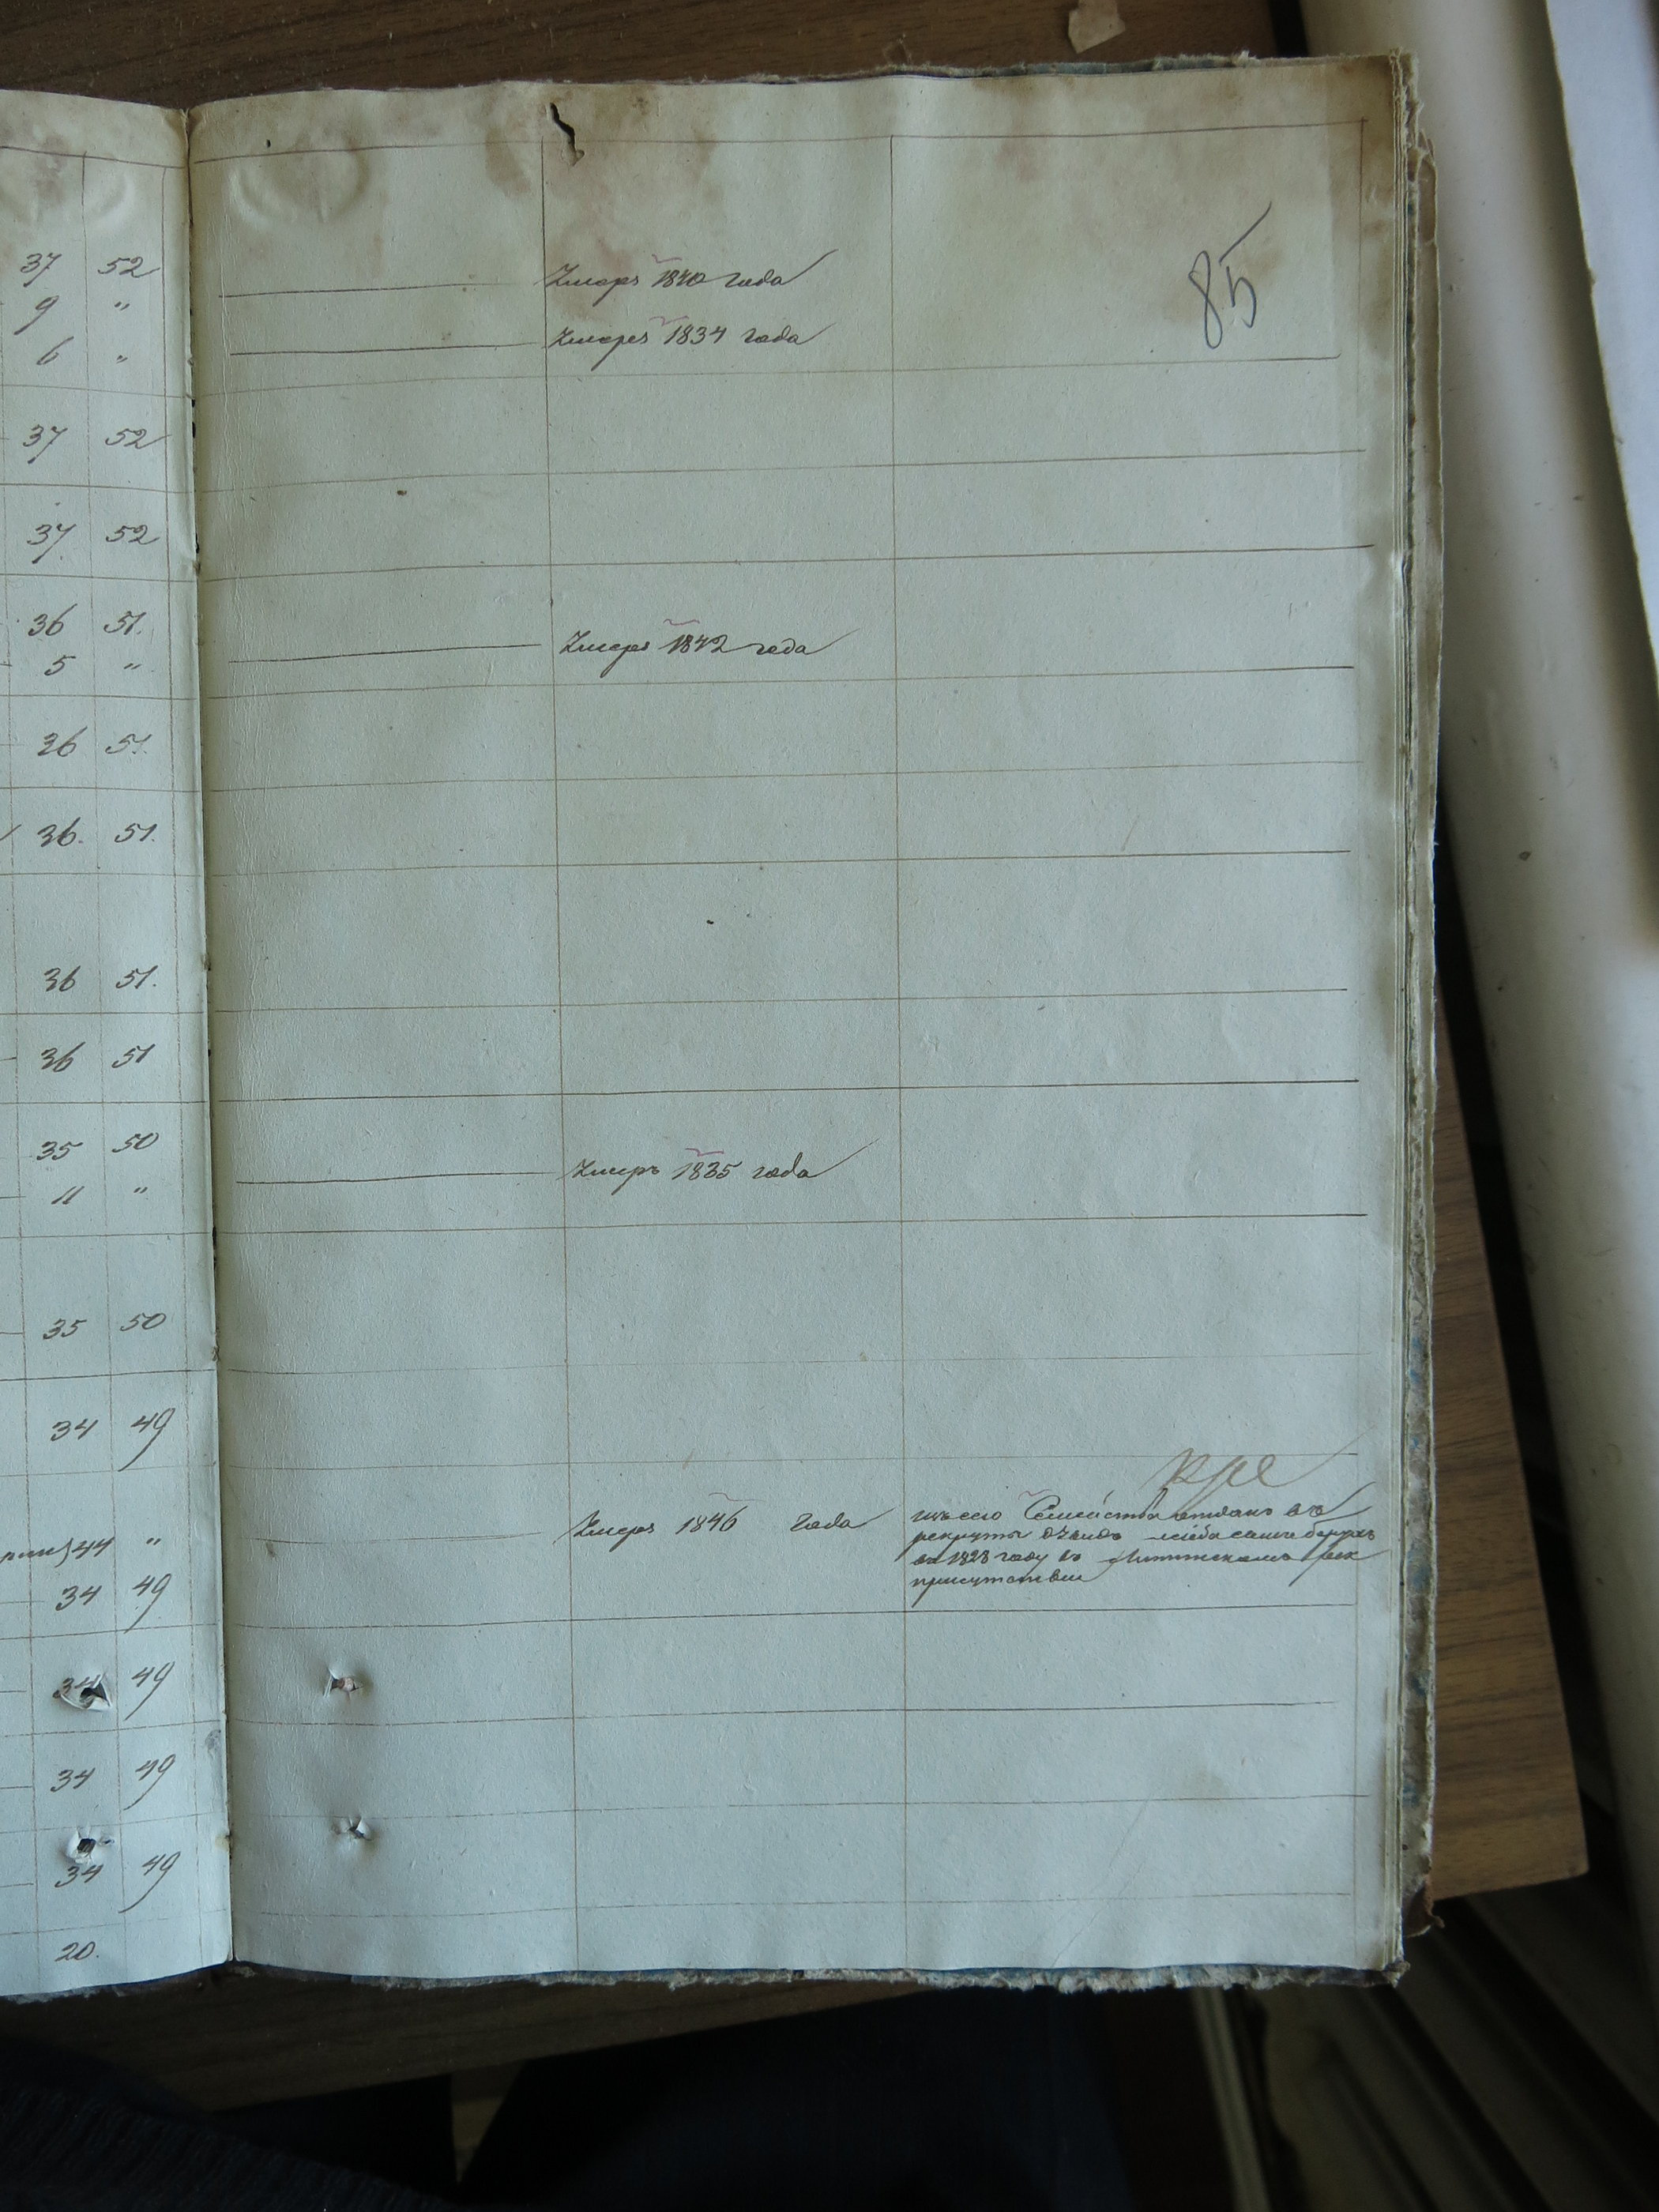 85
37 52 Умеръ 1840 года
9 "
6 " Умеръ 1834 года
37 52
37 52
36 51.
5 " Умеръ 1842 года
36 51.
36. 51.
36 51.
36 51
35 50
11 " Умеръ 1835 года
35 50
34 49
изъ сего Семейства отданъ въ
44 " Умеръ 1846 года рекруты
въ 1828 году въ
34 49 присутствіи
34 49
34 49
34 49
20.